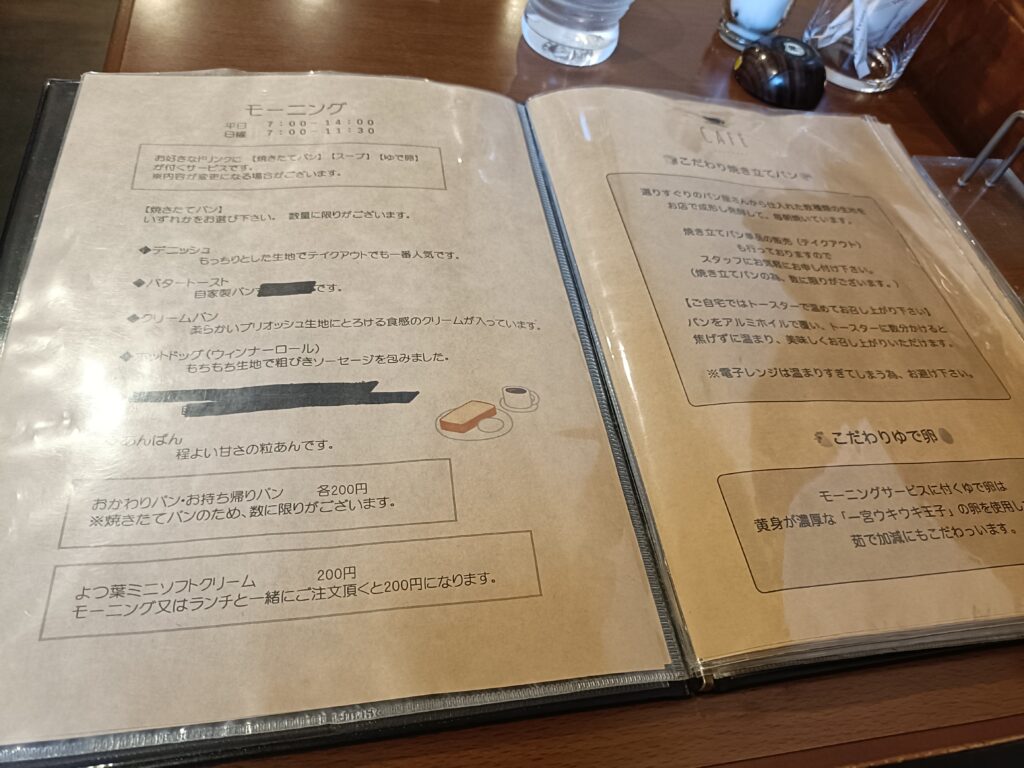 モーニング
平日 7:00-14:00
日曜 7:00-11:30
お好きなドリンクに 【焼きたてパン】【スープ】【ゆで卵】
が付くサービスです。
※内容が変更になる場合がございます。
【焼きたてパン】
いずれかをお選び下さい。 数量に限りがございます。
◆デニッシュ
もっちりとした生地でテイクアウトでも一番人気です。
◆バタートースト
自家製パン です。
◆クリームパン
柔らかいブリオッシュ生地にとろける食感のクリームが入っています。
◆ホットドッグ(ウィンナーロール)
もちもち生地で粗びきソーセージを包みました。
あんぱん
程よい甘さの粒あんです。
おかわりパン・お持ち帰りパン 各200円
※焼きたてパンのため、数に限りがございます。
よつ葉ミニソフトクリーム 200円
モーニング又はランチと一緒にご注文頂くと200円になります。
CAFE
こだわり焼き立てパン
選りすぐりのパン屋さんから仕入れた数種類の生地を
お店で成形し発酵して、毎朝焼いています。
焼き立てパン単品の販売(テイクアウト)
も行っておりますので
スタッフにお気軽にお申し付け下さい。
(焼き立てパンの為、数に限りがございます。)
【ご自宅ではトースターで温めてお召し上がり下さい】
パンをアルミホイルで覆い、トースターに数分かけると
焦げずに温まり、美味しくお召し上がりいただけます。
※電子レンジは温まりすぎてしまう為、お避け下さい。
こだわりゆで卵
モーニングサービスに付くゆで卵は
黄身が濃厚な「一宮ウキウキ王子」の卵を使用し
茹で加減にもこだわっいます。